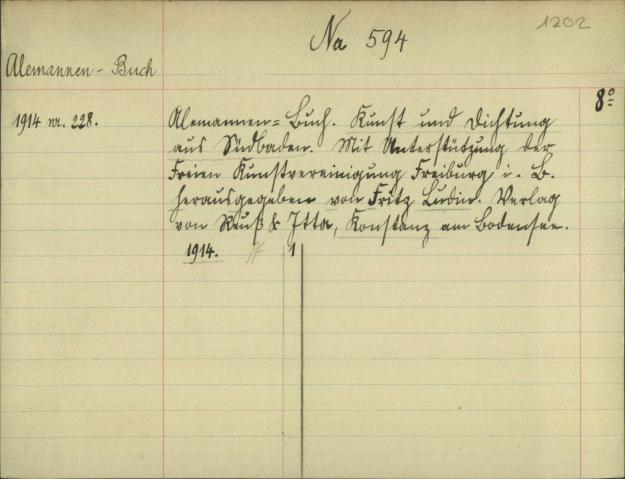 Na 594
1202
Alemannen-Buch
8°
1914 nr. 228.
Alemannen-Buch. Kunst und Dichtung
aus Südbaden. Mit Unterstützung der
Freien Kunstvereinigung Freiburg i. B.
herausgegeben von Fritz Ludin. Verlag
von Reuß & Itta, Konstanz am Bodensee.
1914. 1